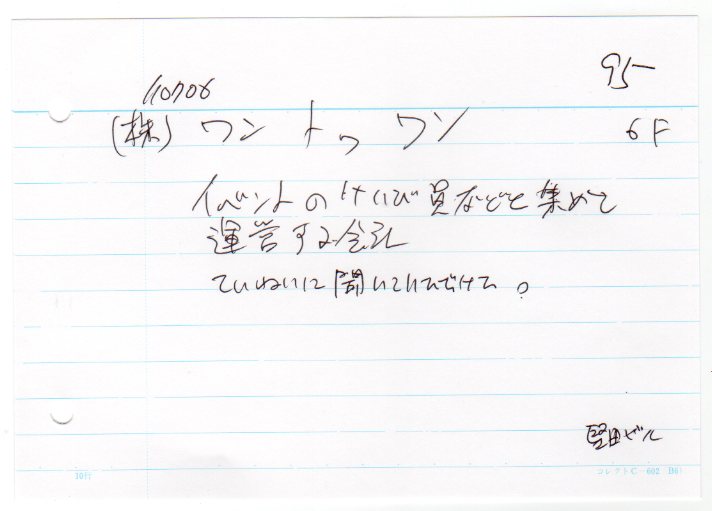 95
110706
(株) ワントゥワン
6F
イベントのけいび員などを集めて
運営する会社
ていねいに聞いていただけた。
堅田ビル
10行
コレクト C-602 B6